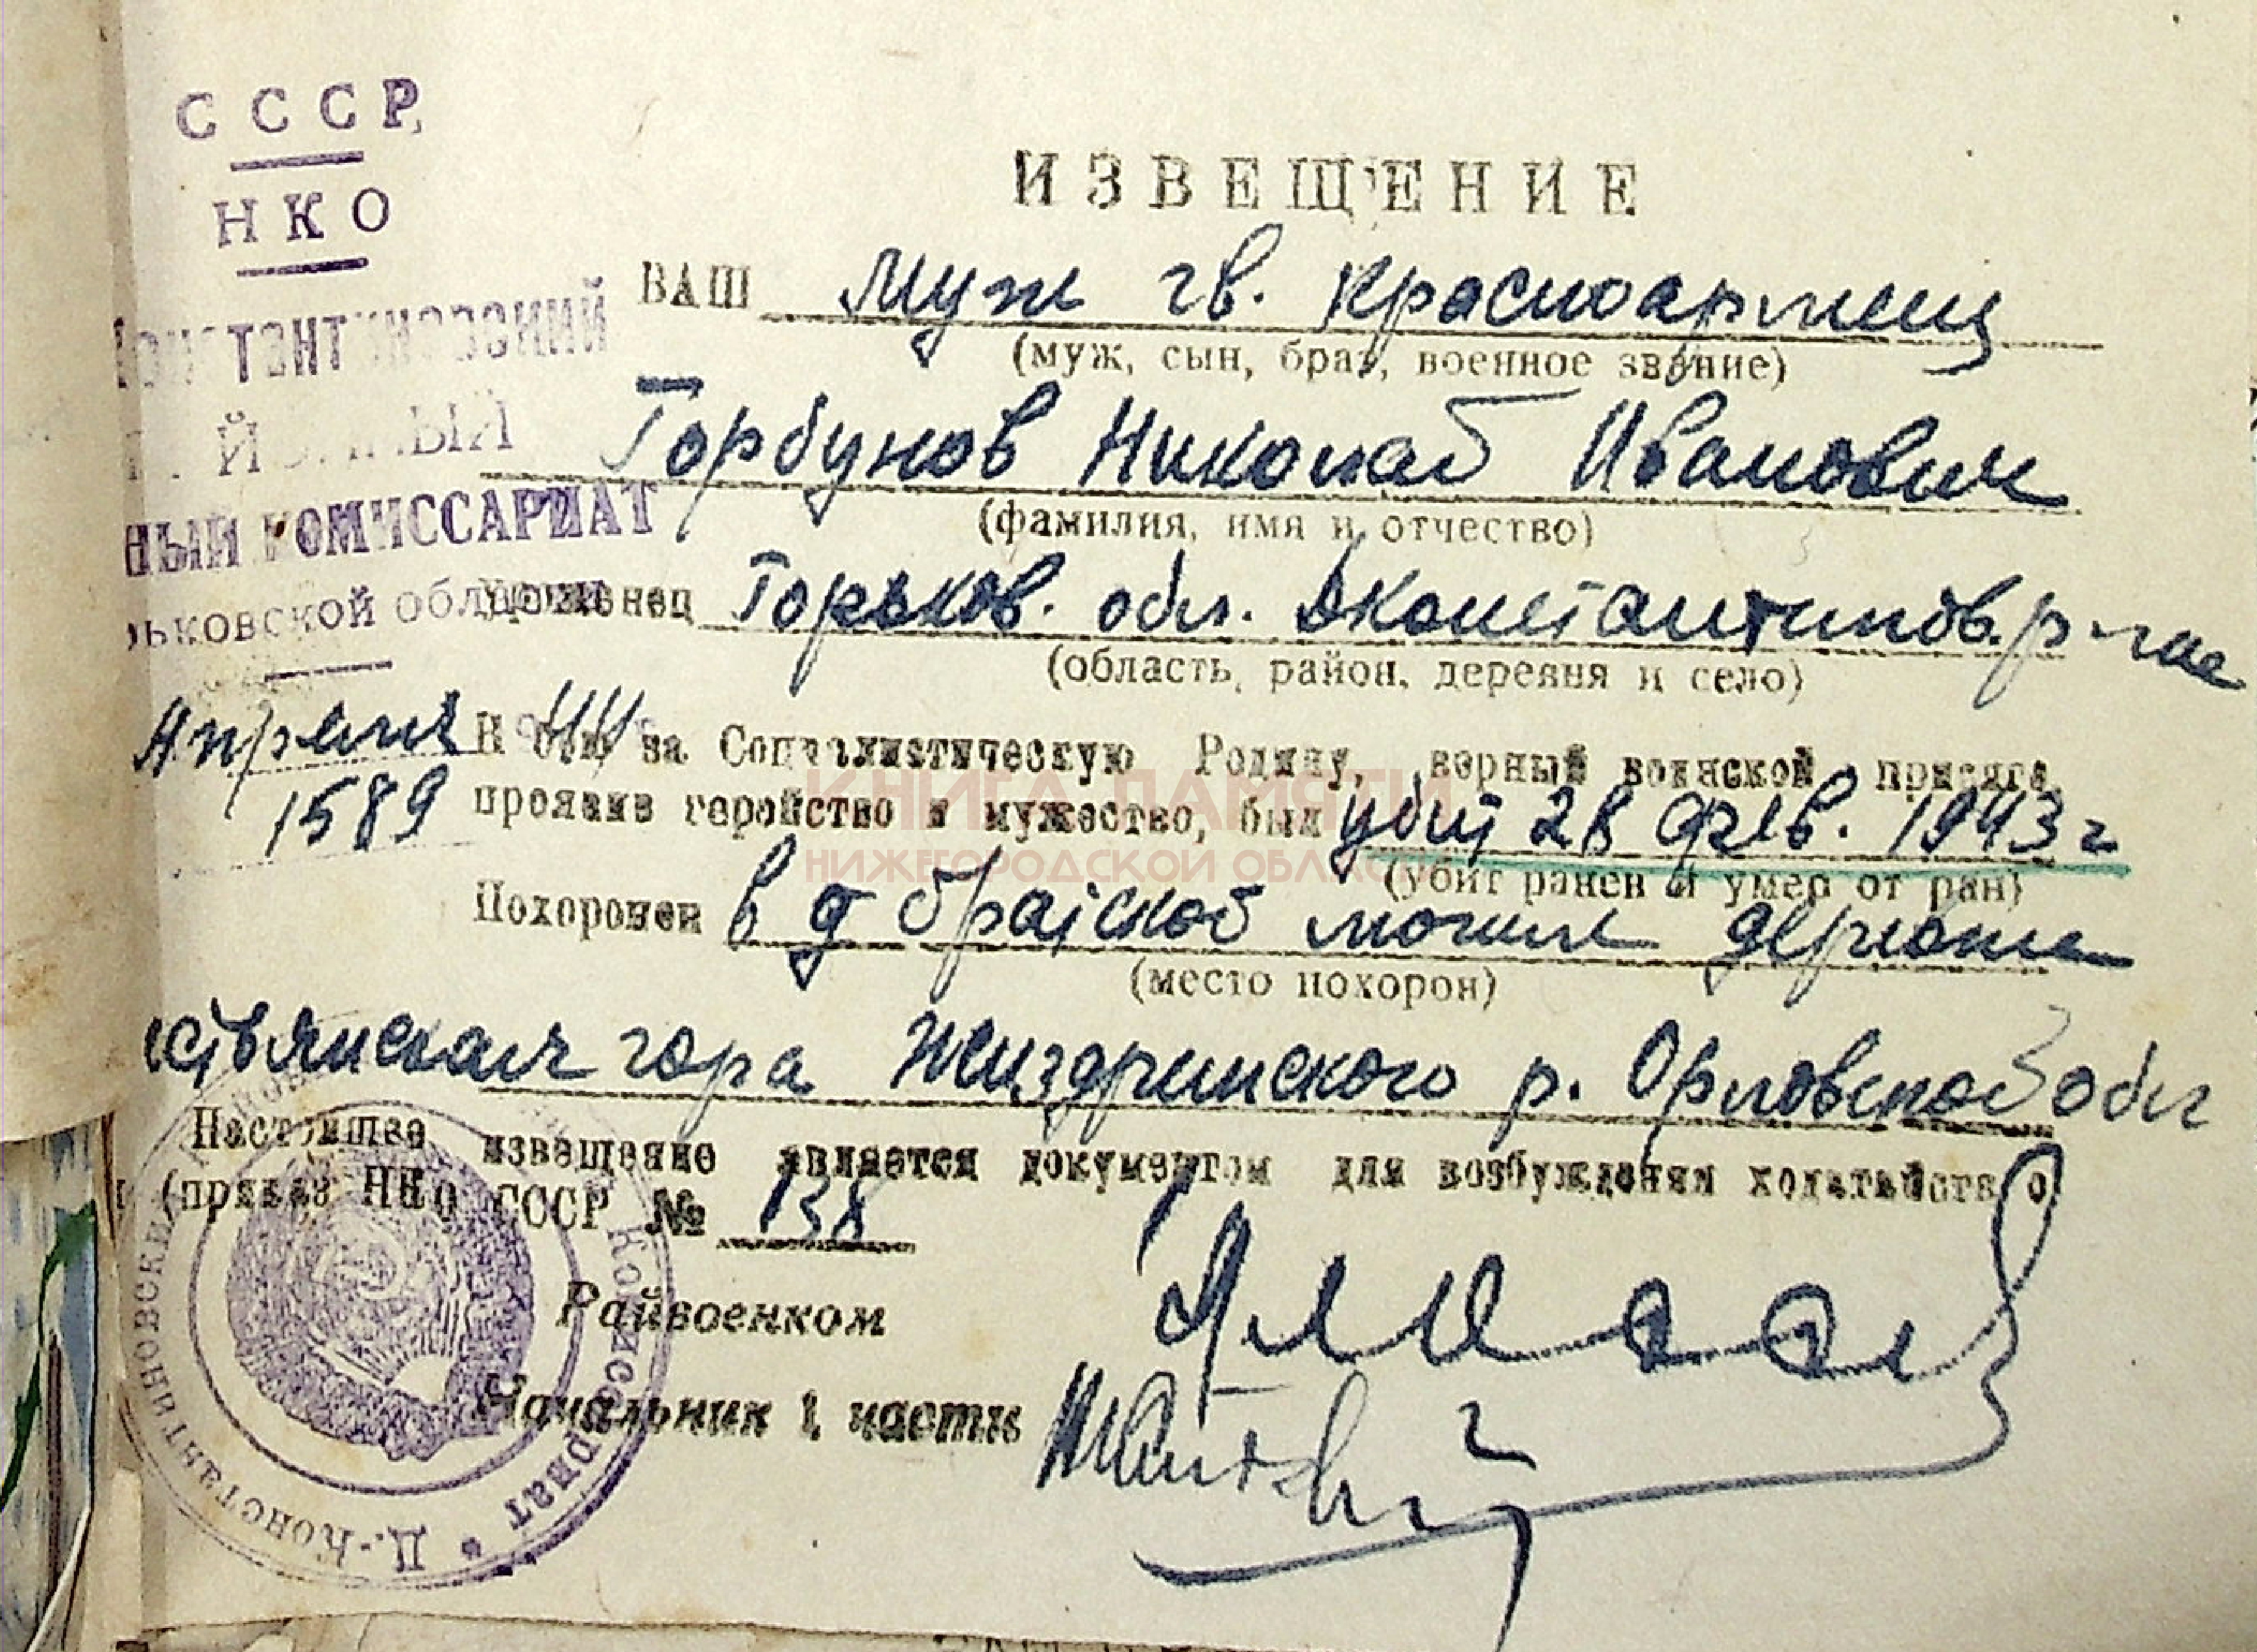 СССР
НКО
КОНСТАНТИНОВСКИЙ
НЫЙ КОМИССАРИАТ
ьковской области
Апреля 44
1589
ИЗВЕЩЕНИЕ
ВАШ муж гв. красноармеец
(муж, сын, брат, военное звание)
Горбунов Николай Иванович
(фамилия, имя и отчество)
Уроженец Горьков. обл. Дконстантинов. р-на
(область, район, деревня и село)
В бою за Социалистическую Родину, верный воинской присяге,
проявив геройство и мужество, был убит 28 фев. 1943 г
(убит ранен и умер от ран)
Похоронен в д братской могиле деревни
(место похорон)
ствянская гора Жиздринского р. Орловской обл
Настоящее извещение является документом для возбуждения ходатайства о
(приказ НКО СССР № 138
Райвоенком
Начальник 1 части
Д.-Константиновский Комиссариат
КНИГА ПАМЯТИ
НИЖЕГОРОДСКОЙ ОБЛАСТИ